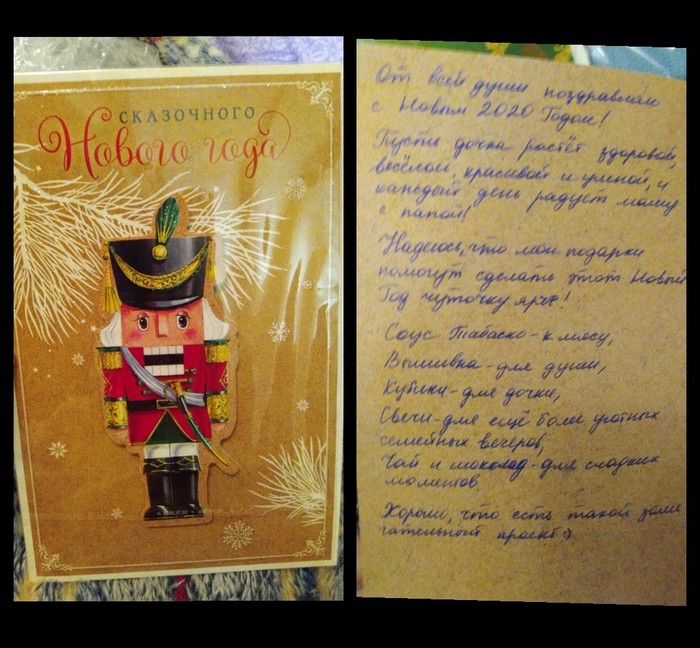 СКАЗОЧНОГО
Нового года
От всей души поздравляю
с Новым 2020 Годом!
Пусть дочка растёт здоровой,
весёлой, красивой и умной, и
каждый день радует маму
с папой!
Надеюсь, что мои подарки
помогут сделать этот Новый
Год чуточку ярче!
Соус Табаско - к мясу,
Вышивка - для души,
Кубики - для дочки,
Свечи - для ещё более уютных
семейных вечеров,
Чай и шоколад - для сладких
моментов
Хорошо, что есть такой заме
чательный проект :)